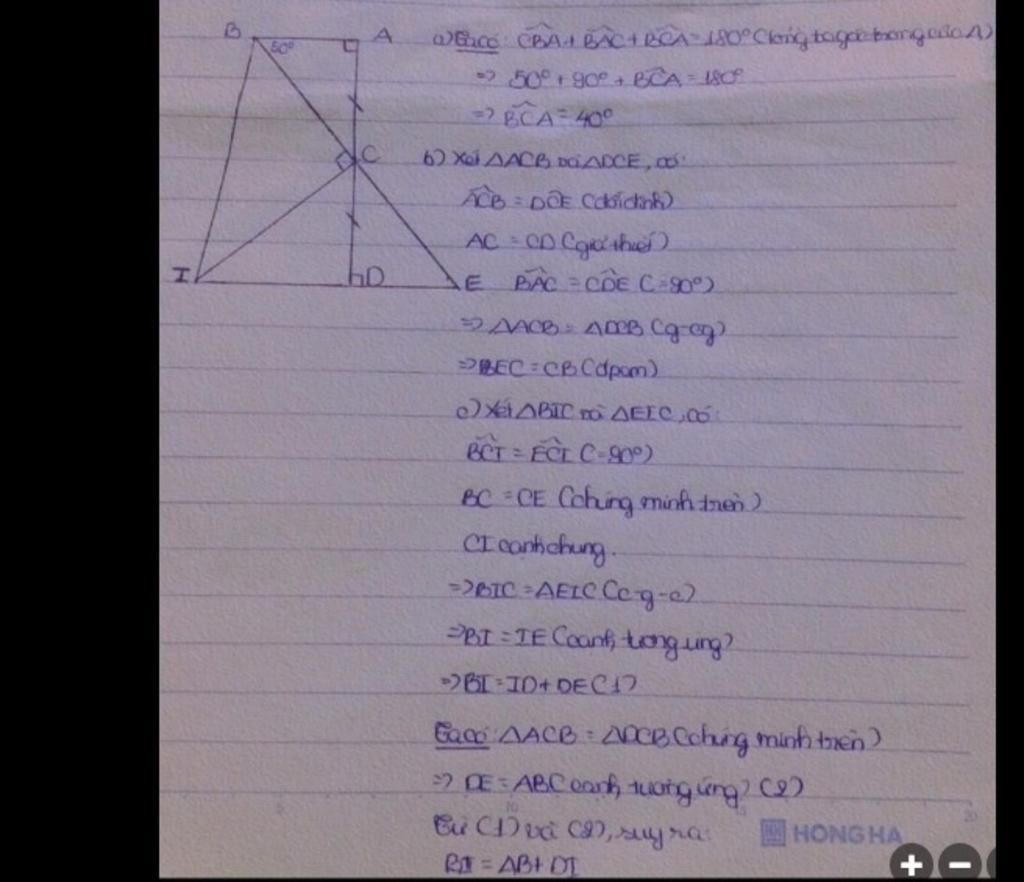 B 50° A
C
I D E
a) Ta có: CBA + BAC + BCA = 180° (tổng ba góc trong của Δ)
=> 50° + 90° + BCA = 180°
=> BCA = 40°
b) Xét ΔACB và ΔDCE, có:
ACB = DCE (đối đỉnh)
AC = CD (giả thiết)
BAC = CDE (=90°)
=> ΔACB = ΔDCB (g-c-g)
=> EC = CB (đpcm)
c) Xét ΔBIC và ΔEIC, có:
BCI = ECI (=90°)
BC = CE (chứng minh trên)
CI cạnh chung.
=> BIC = ΔEIC (c-g-c)
=> BI = IE (cạnh tương ứng)
=> BI = ID + DE (1)
Ta có: ΔACB = ΔDCB (chứng minh trên)
=> DE = AB (cạnh tương ứng) (2)
Từ (1) và (2), suy ra:
BI = AB + DI
HONG HA